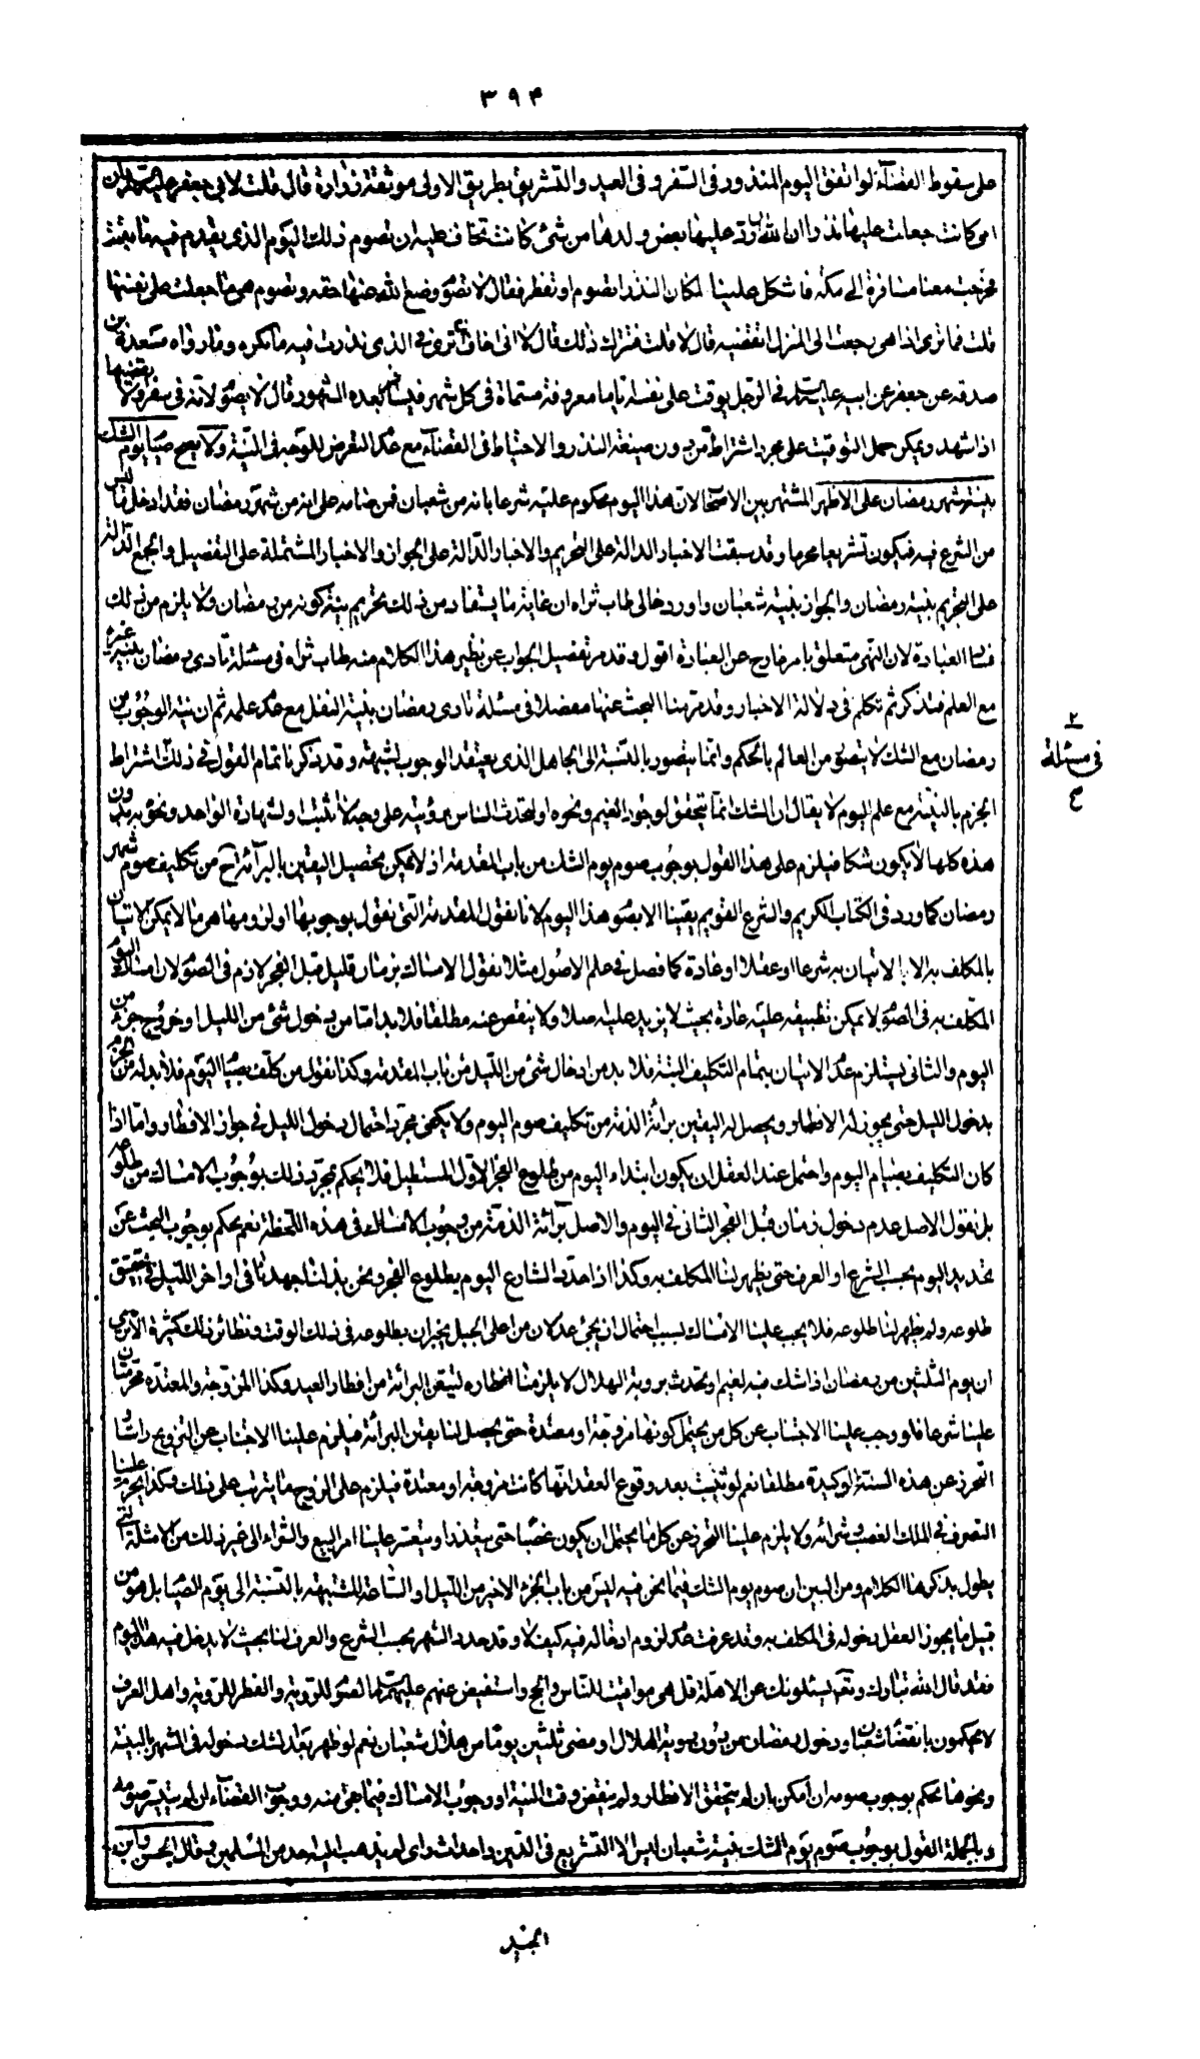 ٣٩۴
على سقوط القضاء لو اتفق اليوم المنذور فى السفر و فى العيد والتشريق بطريق الاولى موثقة زرارة قال قلت لابى جعفر عليه السلام ان
امى كانت جعلت عليها نذرا ان الله رد عليها بعض ولدها من شئ كانت تخاف عليه ان تصوم ذلك اليوم الذى يقدم فيه ما بقيت
فخرجت معنا مسافرة الى مكة فاشكل علينا لمكان النذر اتصوم او تفطر فقال لا تصوم وضع الله عنها حقه وتصوم هى ما جعلت على نفسها
قلت فما ترى اذا هى رجعت الى المنزل اتقضيه قال لا قلت فتترك ذلك قال لا انى اخاف ان ترى فى الذى نذرت فيه ما تكره وما رواه مسعدة بن
صدقه عن جعفر عن ابيه عليهما السلام فى الرجل يوقت على نفسه اياما معروفة مسماة فى كل شهر فيسافر بعده الشهور قال لا يصوم لانه فى سفر ولا يقضيها
اذا شهد ويمكن حمل التوقيت على مجرد اشتراط من دون صيغة النذر والاحتياط فى القضاء مع عدم التعرض للوجه فى النية ولا يصح صيام يوم الشك
بنية شهر رمضان على الاظهر المشتهر بين الاصحاب لان هذا اليوم محكوم عليه شرعا بانه من شعبان فمن صامه على انه من شهر رمضان فقد ادخل ما ليس
من الشرع فيه فيكون تشريعا محرما وقد سبقت الاخبار الدالة على التحريم والاخبار الدالة على الجواز والاخبار المشتملة على التفصيل والجمع الدالة
على التحريم بنية رمضان والجواز بنية شعبان واورد خالى طاب ثراه ان غاية ما يستفاد من ذلك تحريم نية كونه من رمضان ولا يلزم من ذلك
فساد العبادة لان النهى متعلق بامر خارج عن العبادة اقول وقد مر تفصيل الجواب عن نظير هذا الكلام منه طاب ثراه فى مسئلة تادى رمضان بنية غيره
مع العلم فتذكر ثم تكلم فى دلالة الاخبار وقد مر منا البحث عنها مفصلا فى مسئلة تادى رمضان بنية النفل مع عدم علمه ثم ان نية الوجوب من
رمضان مع الشك لا يتصور من العالم بالحكم وانما يتصور بالنسبة الى الجاهل الذى يعتقد الوجوب لشبهة وقد ذكرنا تمام القول فى ذلك اشتراط
الجزم بالنية مع علم اليوم لا يقال ان الشك انما يتحقق لوجود الغيم ونحوه او لتحدث الناس برؤيته على وجه لا تثبت او لشهادة الواحد ونحوه بدون
هذه كلها لا يكون شكا فيلزم على هذا القول بوجوب صوم يوم الشك من باب المقدمة اذ لا يمكن تحصيل اليقين بالبرائة ح من تكليف صوم شهر
رمضان كما ورد فى الكتاب الكريم والشرع القويم يقينا الا بصوم هذا اليوم لانا نقول المقدمة التى نقول بوجوبها او لزومها هى ما لا يمكن الاتيان
بالمكلف به الا بالاتيان به شرعا او عقلا او عادة كما فصل فى علم الاصول مثلا نقول الامساك بزمان قليل قبل الفجر لازم فى الصوم لان امساك اليوم
المكلف به فى الصوم لا يمكن تطبيقه عليه عادة بحيث لا يزيد عليه اصلا ولا ينقص عنه مطلقا فلابد اما من دخول شئ من الليل او خروج جزء من
اليوم والثانى يستلزم عدم الاتيان بتمام التكليف البتة فلابد من ادخال شئ من الليل من باب المقدمة وكذا نقول من كلف بصيام اليوم فلابد له من الجزم
بدخول الليل حتى يجوز له الافطار ويحصل له اليقين ببرائة الذمة من تكليف صوم اليوم ولا يكفى مجرد احتمال دخول الليل فى جواز الافطار واما اذا
كان التكليف بصيام اليوم واحتمل عند العقل ان يكون ابتداء اليوم من طلوع الفجر الاول المستطيل فلا يحكم بمجرد ذلك بوجوب الامساك من طلوعه
بل نقول الاصل عدم دخول زمان قبل الفجر الثانى فى اليوم والاصل برائة الذمة من وجوب الامساك فى هذه اللحظة نعم يحكم بوجوب البحث عن
تحديد اليوم بحسب الشرع او العرف حتى يظهر لنا المكلف به وكذا اذا حدد الشارع اليوم بطلوع الفجر ونحن بذلنا جهدنا فى اواخر الليل فى تحقيق
طلوعه ولم يظهر لنا طلوعه فلا يجب علينا الامساك بسبب احتمال ان يجئ عدلان من اعلى الجبل يخبران بطلوعه فى ذلك الوقت ونظائر ذلك كثيرة الا ترى
ان يوم الثلثين من رمضان اذا شك فيه لغيم او تحدث برؤية الهلال لا يلزمنا افطاره لتيقن البرائة من افطار العيد وكذا المزوجة والمعتدة محرمتان
علينا شرعا فلو وجب علينا الاجتناب عن كل من يحتمل كونها مزوجة او معتدة حتى يحصل لنا يقين البرائة فيلزم علينا الاجتناب عن التزويج راسا و
التحرز عن هذه السنة الوكيدة مطلقا نعم لو تثبت بعد وقوع العقد انها كانت مزوجة او معتدة فيلزم على الزوج ما يترتب على ذلك وكذا يحرم علينا
التصرف فى الملك الغصب وشرائه ولا يلزم علينا التحرز عن كل ما يحتمل ان يكون غصبا حتى يتعذر او يتعسر علينا امر البيع والشراء الى غير ذلك من الامثلة التى
يطول بذكرها الكلام ومن البين ان صوم يوم الشك فيما نحن فيه ليس من باب الجزء الاخير من الليل او الساعة المشتبهة بالنسبة الى يوم الصيام بل هو من
قبيل ما يجوز العقل دخوله فى المكلف به وقد عرفت عدم لزوم ادخاله فيه كيف لا وقد حدد الشهر بحسب الشرع والعرف لنا بحيث لا يدخل فيه هذا اليوم
فقد قال الله تبارك وتعالى يسئلونك عن الاهلة قل هى مواقيت للناس والحج واستفيض عنهم عليهم السلام الصوم للرؤية والفطر للرؤية واهل العرف
لا يحكمون بانقضاء شعبان ودخول رمضان من دون رؤية الهلال او مضى ثلثين يوما من هلال شعبان نعم لو ظهر بعد الشك دخوله فى الشهر بالبينة
ونحوها نحكم بوجوب صومه ان امكن بان لم يتحقق الافطار ولم ينقض وقت النية او وجوب الامساك فيما بقى منه ووجوب القضاء ان لم يتيسر صومه
وبالجملة القول بوجوب صوم يوم الشك بنية شعبان ليس الا التشريع فى الدين واحداث راى لم يذهب اليه احد من المسلمين وقال الحسن وابن
الجنيد
٢
فى مسئلة
٣